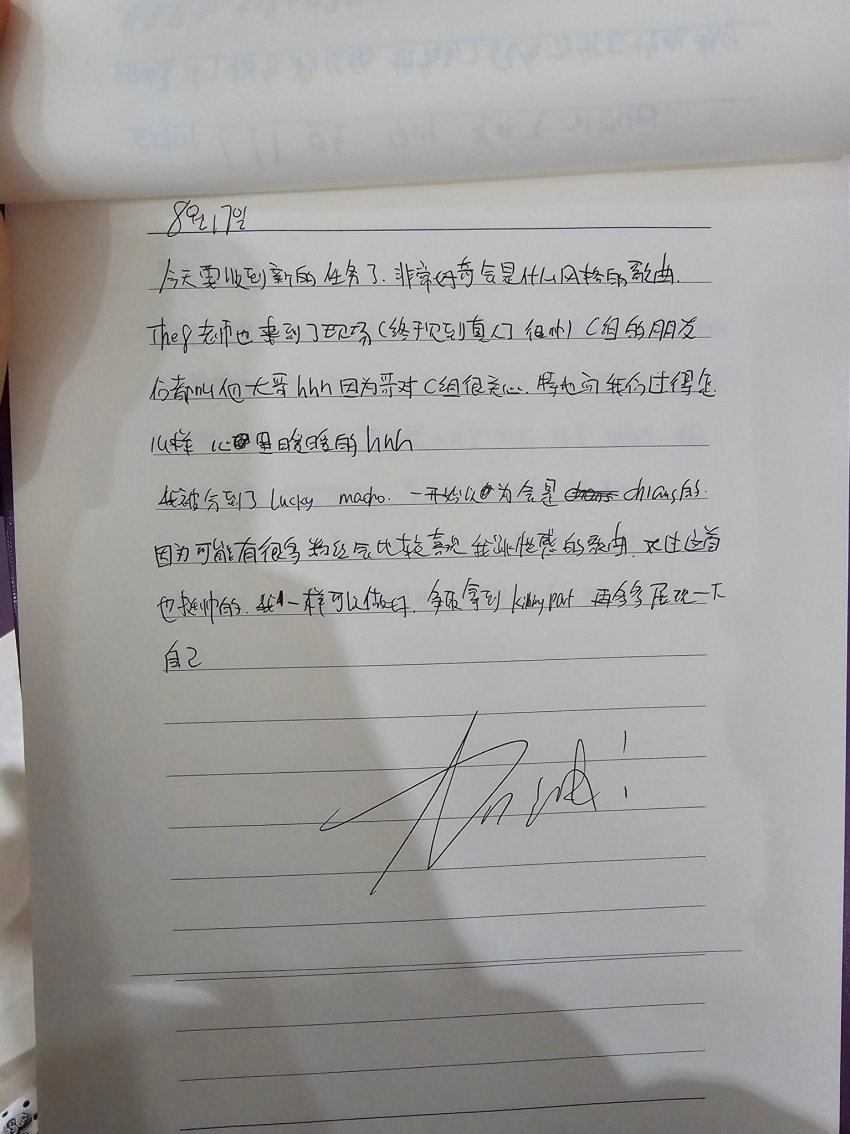 8月17日
今天要收到新的任务了.非常好奇会是什么风格的歌曲.
The8老师也来到了现场(终于见到真人了 很帅) C组的朋友
们都叫他大哥hhh因为哥对C组很关心.时也问我们过得怎
么样 心里暖暖的hhh
我被分到了Lucky macho.一开始以为会是 chians的.
因为可能有很多粉丝会比较喜欢我跳性感的歌曲.不过这首
也挺帅的.我一样可以做好.争取拿到killing part 再多多展现一下
自己